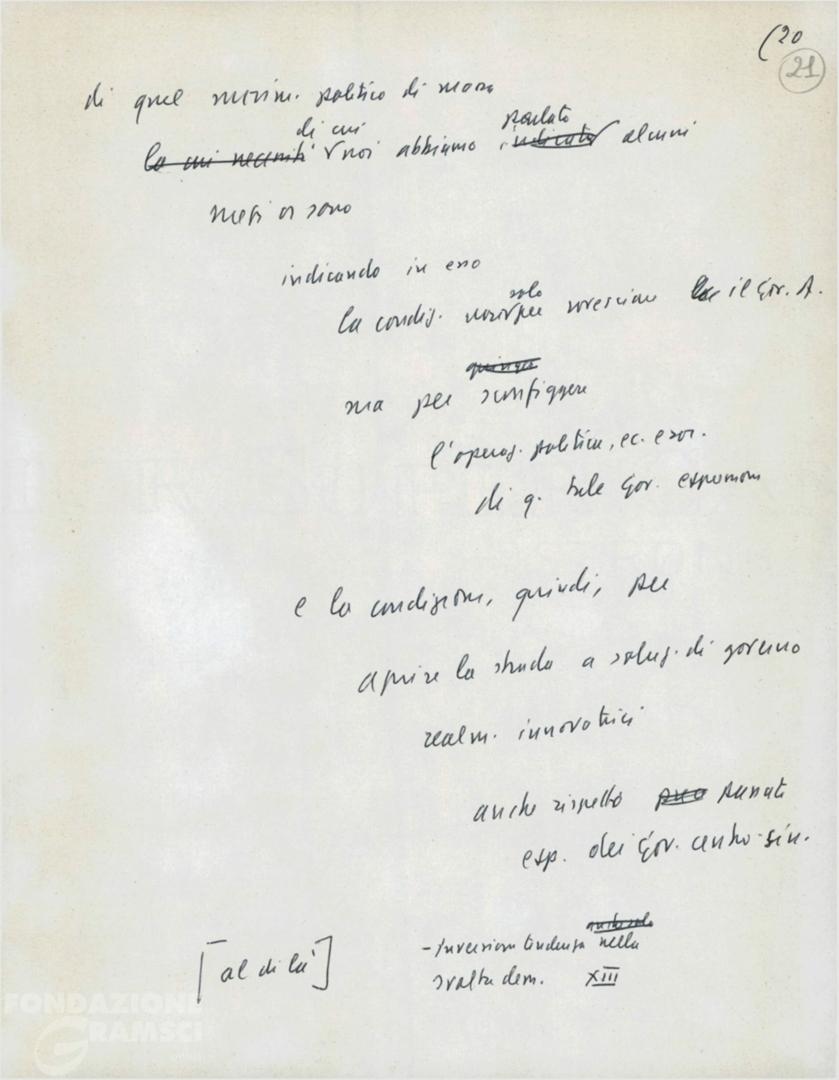 (20
21
di quel movim. politico di massa
di cui parlato
la cui necessità noi abbiamo indicato alcuni
mesi or sono
indicando in esso
solo
la condiz. non per rovesciare il Gov. A.
ma per sconfiggere
l'operaz. politica, ec. e sor.
di q. tale Gov.
e la condizione, quindi, per
aprire la strada a soluz. di governo
realm. innovatrici
anche rispetto passate
esp. dei Gov. centro-sin.
anche solo
[al di là]
- Inversione tendenza nella
svolta dem. XIII
FONDAZIONE
GRAMSCI